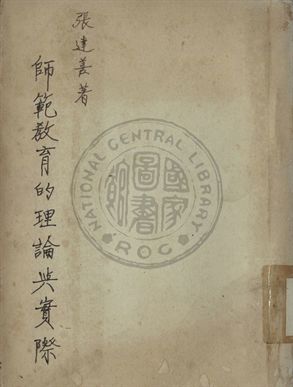 張達善著
師範教育的理論与實際
NATIONAL CENTRAL LIBRARY
國家圖書館
ROC